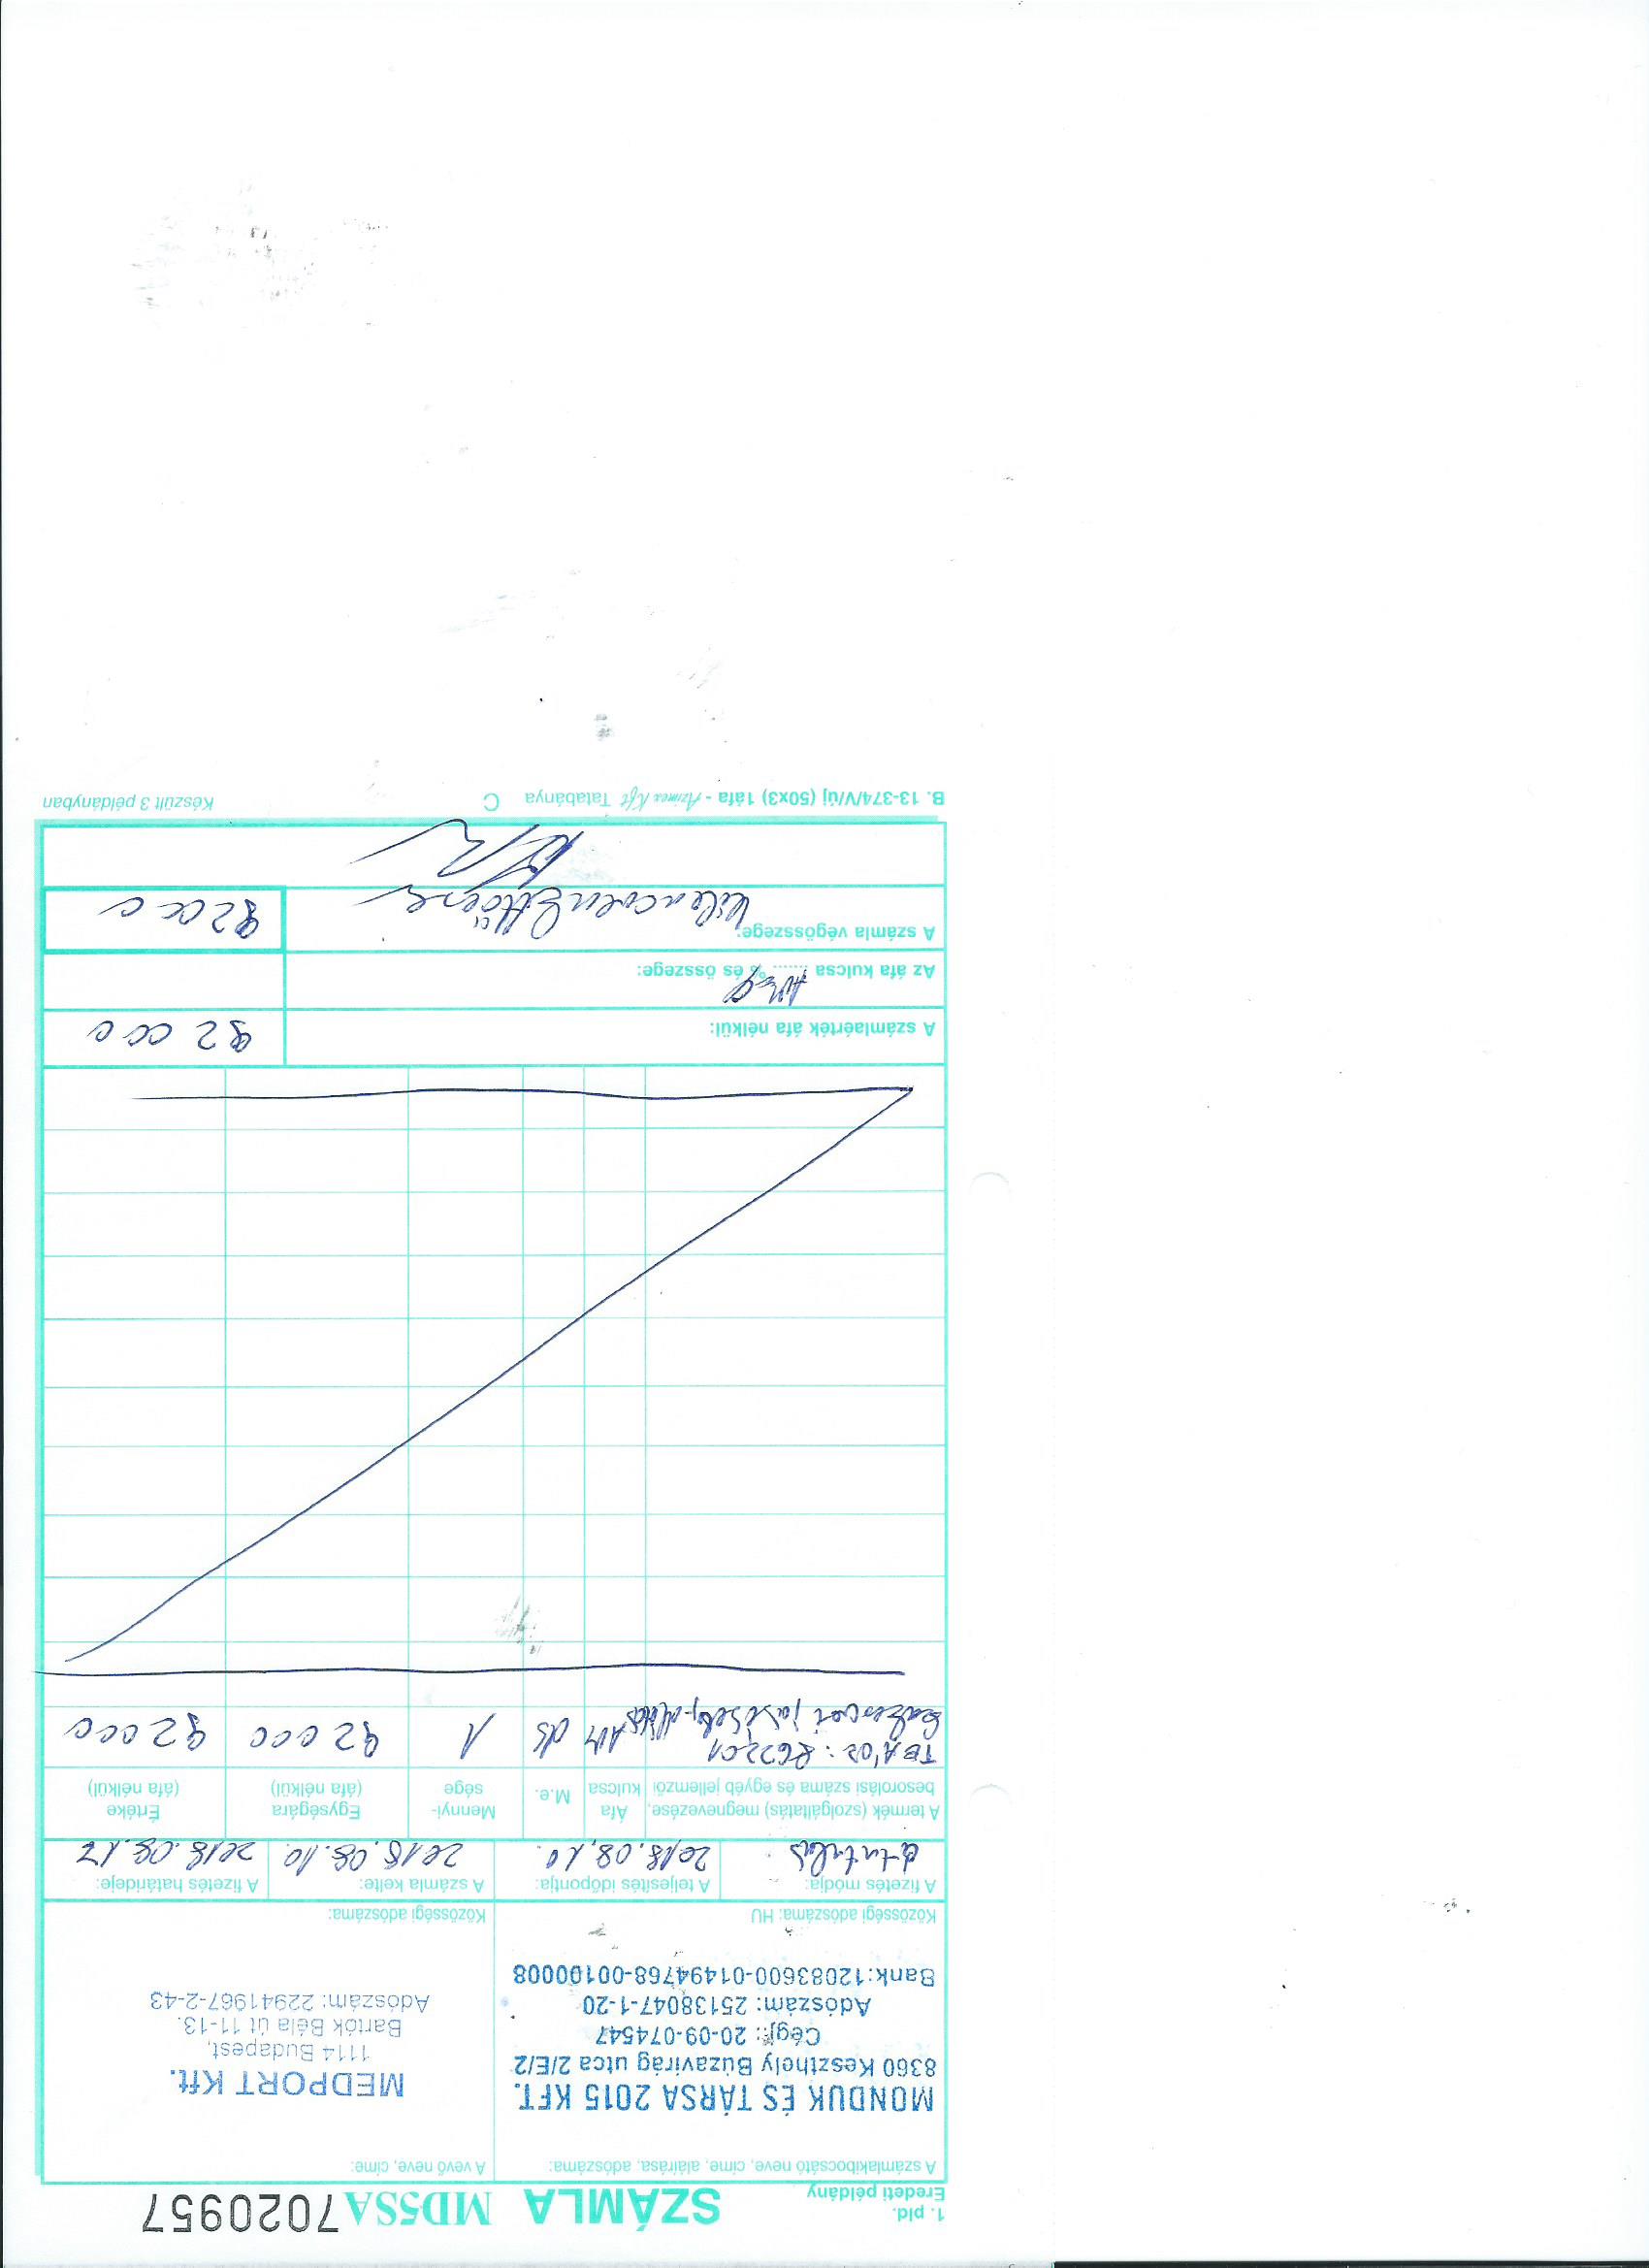 1. pld.
Eredeti példány
SZÁMLA MD5SA 7020957
A számlakibocsátó neve, címe, aláírása, adószáma:
MONDUK ÉS TÁRSA 2015 KFT.
8360 Keszthely Búzavirág utca 2/E/2
Cégj.: 20-09-074547
Adószám: 25138047-1-20
Bank:12083600-01494768-00100008
Közösségi adószáma: HU
A vevő neve, címe:
MEDPORT Kft.
1114 Budapest,
Bartók Béla út 11-13.
Adószám: 22941967-2-43
Közösségi adószáma:
A fizetés módja:
átutalás
A teljesítés időpontja:
2018.08.10.
A számla kelte:
2018.08.10.
A fizetés határideje:
2018.08.17
A termék (szolgáltatás) megnevezése,
besorolási száma és egyéb jellemzői
Áfa
kulcsa
M.e.
Mennyi-
sége
Egységára
(áfa nélkül)
Értéke
(áfa nélkül)
TEÁOR: 862201
AM ds 1 92000 92000
A számlaérték áfa nélkül:
92000
Az áfa kulcsa ........ % és összege:
A számla végösszege:
Kilencvenkettőezer
92000
B. 13-374/V/új (50x3) 1áfa - Azimex Kft Tatabánya C
Készült 3 példányban